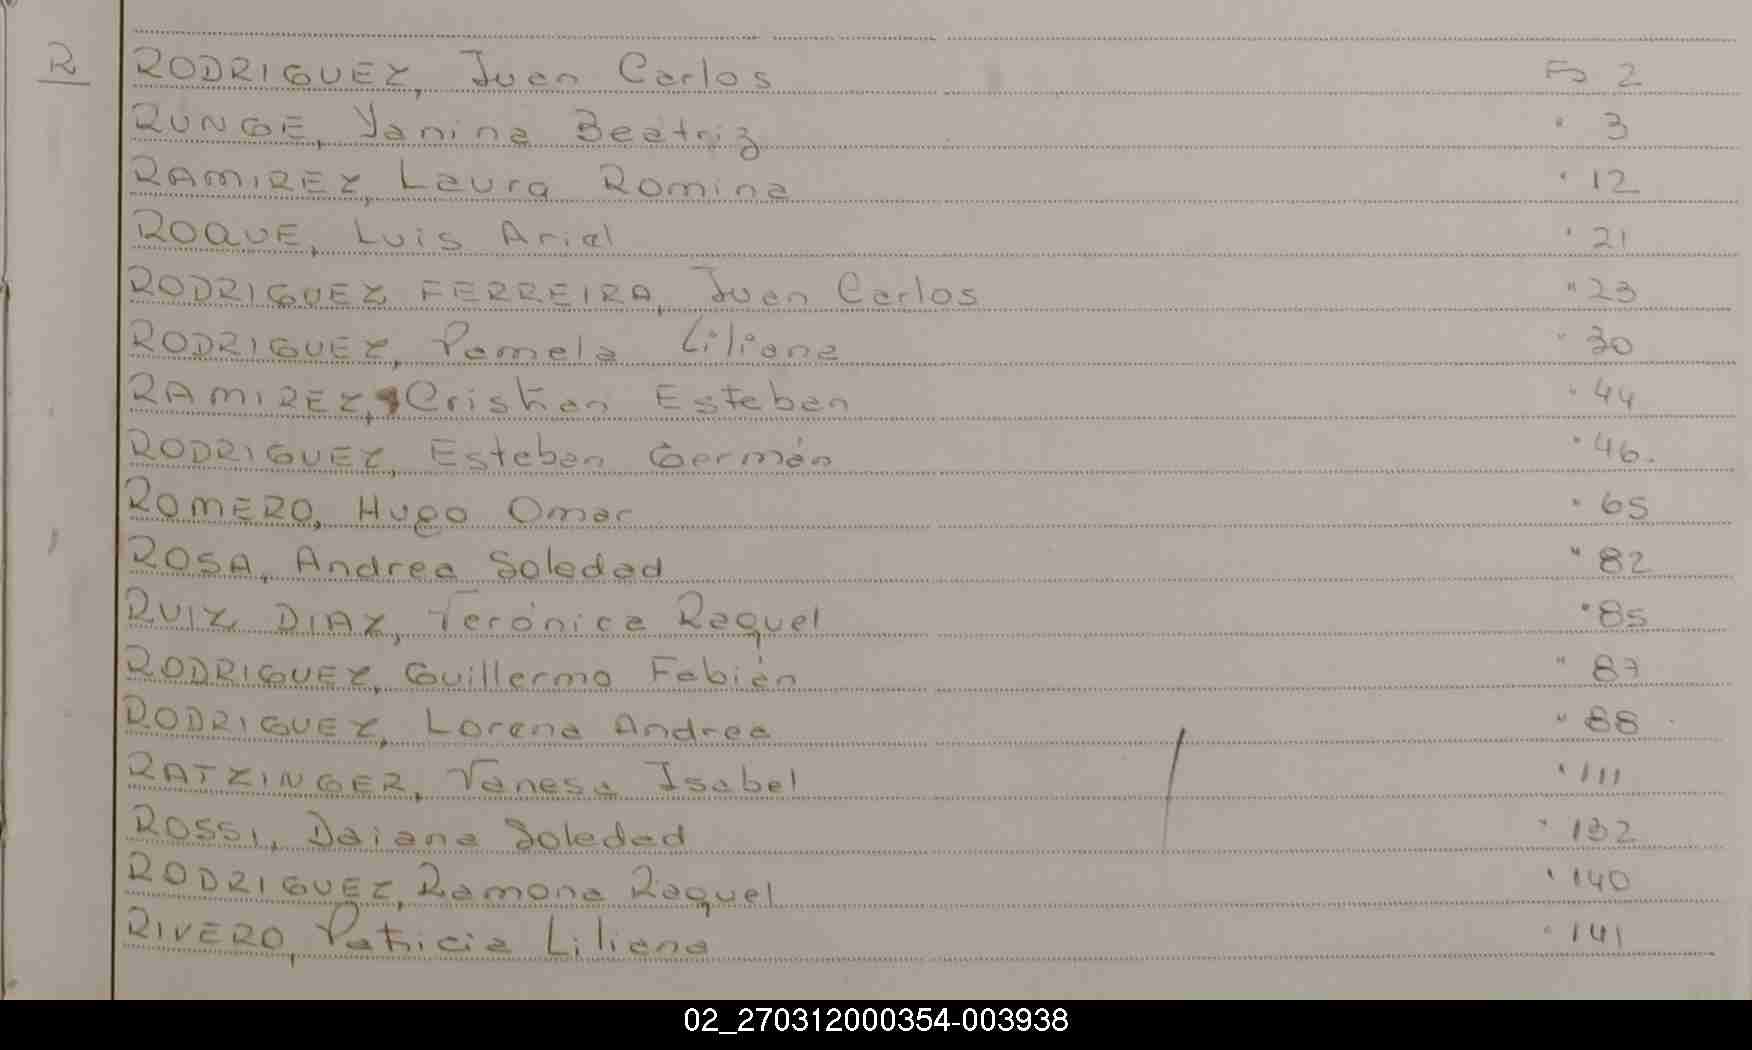 R RODRIGUEZ, Juan Carlos Fo 2
RUNGE, Yanina Beatriz " 3
RAMIREZ, Laura Romina " 12
ROQUE, Luis Ariel " 21
RODRIGUEZ FERREIRA, Juan Carlos " 23
RODRIGUEZ, Pamela Liliana " 30
RAMIREZ, Cristian Esteban " 44
RODRIGUEZ, Esteban Germán " 46.
ROMERO, Hugo Omar " 65
ROSA, Andrea Soledad " 82
RUIZ DIAZ, Verónica Raquel " 85
RODRIGUEZ, Guillermo Fabián " 87
RODRIGUEZ, Lorena Andrea " 88
RATZINGER, Vanesa Isabel " 111
ROSSI, Daiana Soledad " 132
RODRIGUEZ, Ramona Raquel " 140
RIVERO, Patricia Liliana " 141
02_270312000354-003938